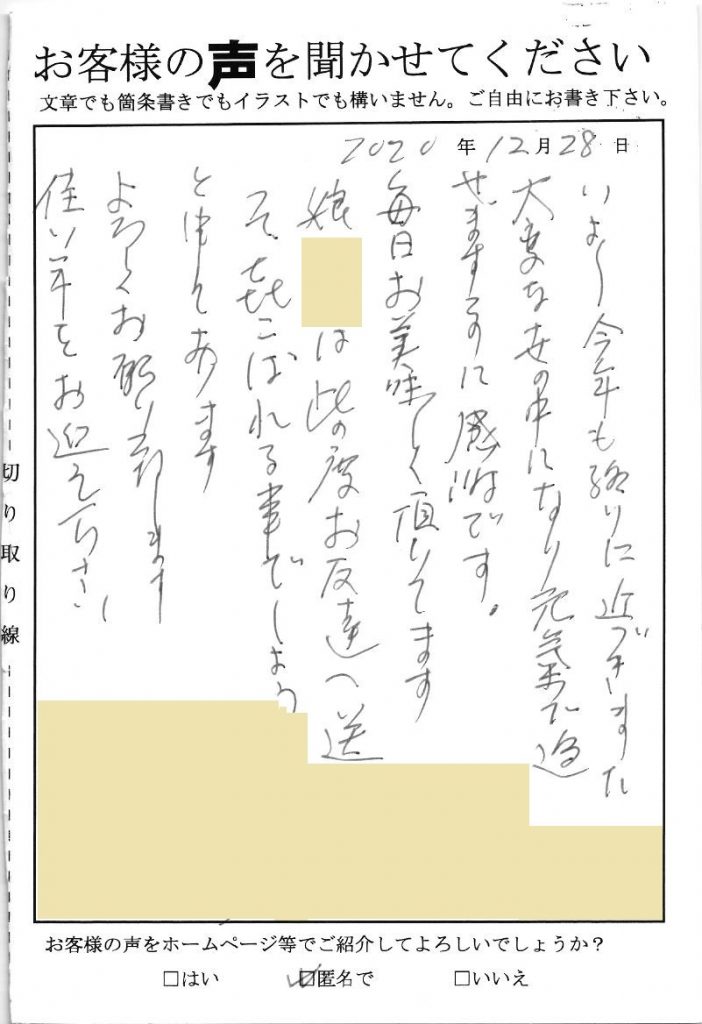 お客様の声を聞かせてください
文章でも箇条書きでもイラストでも構いません。ご自由にお書き下さい。
2020年12月28日
いよ〜今年も終りに近づきました
大変な世の中になり元気で過
せますのに感謝です。
毎日お美味しく頂いてます
娘は此の度お友達へ送
って喜こばれる事でしょう
と申してあります
よろしくお願い致します
佳い年をお迎え下さい
切り取り線
お客様の声をホームページ等でご紹介してよろしいでしょうか?
□はい ☑匿名で □いいえ